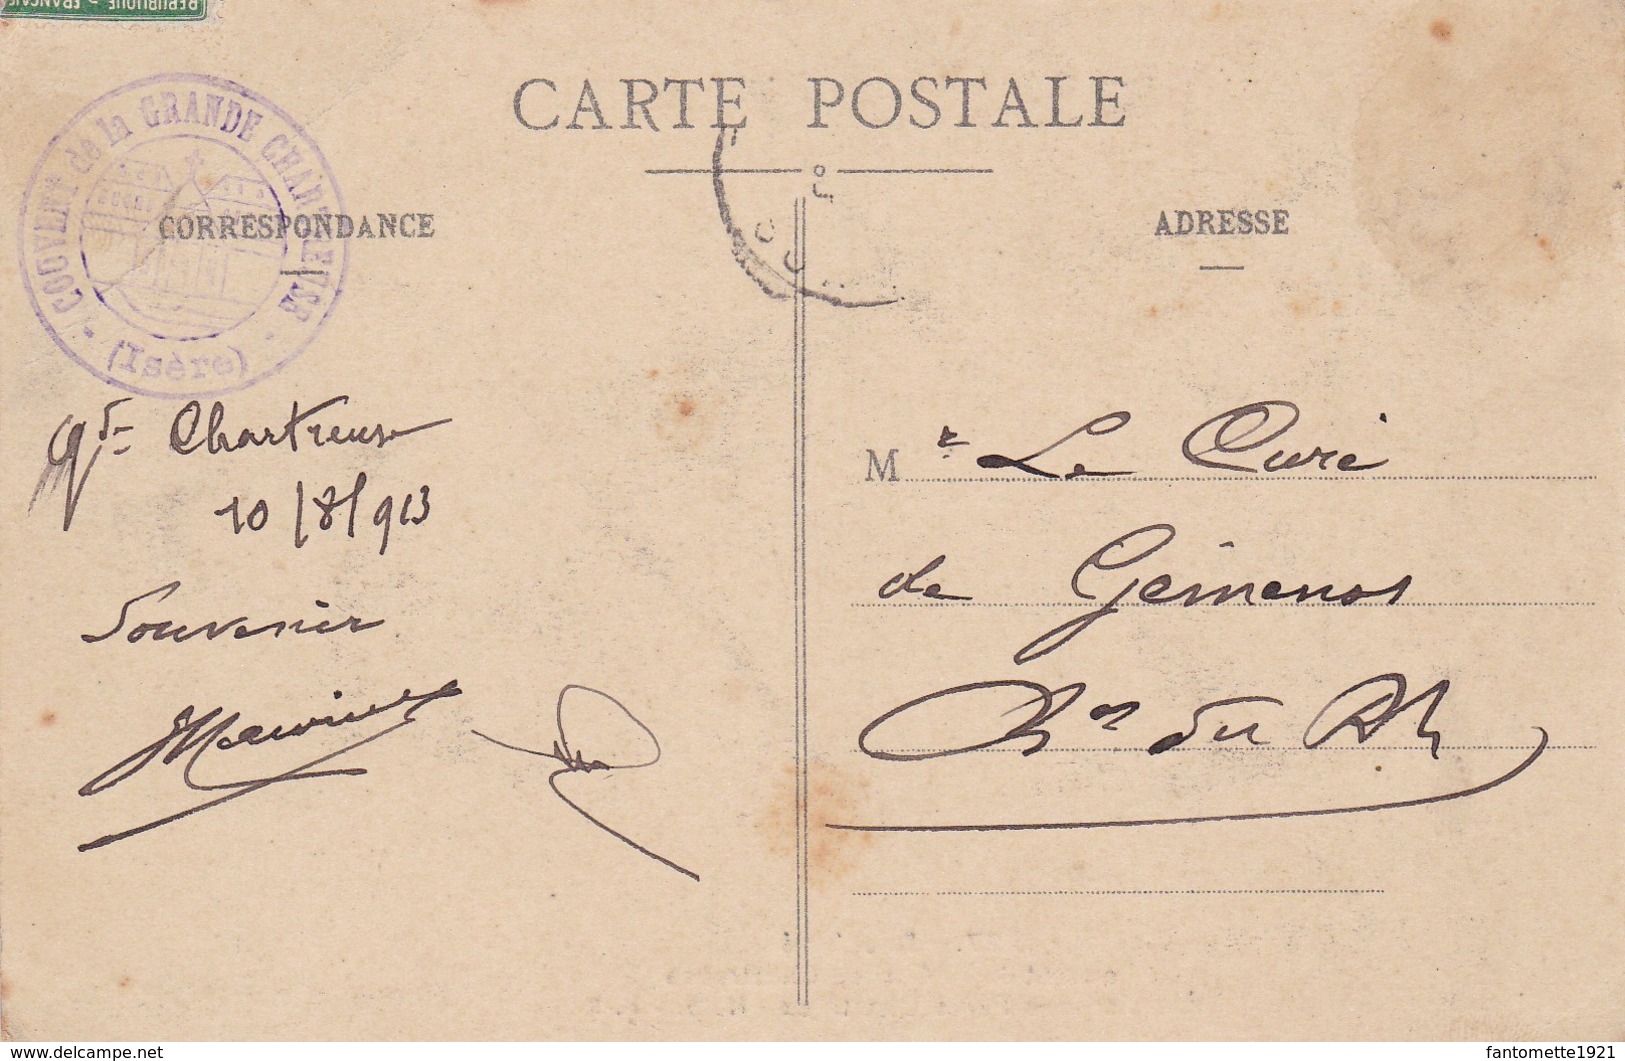 REPUBLIQUE FRANÇAISE
CARTE POSTALE
COUVENT de la GRANDE CHARTREUSE
(Isère)
CORRESPONDANCE
ADRESSE
Gde Chartreuse
10/8/913
Souvenir
Mr Le Curé
de Gémenos
Bes du Rh
fantomette1921
- fantomette1921